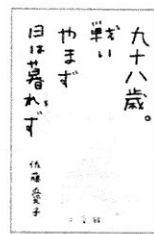 九十八歳。
戦い
やまず
日は暮れず
佐藤愛子